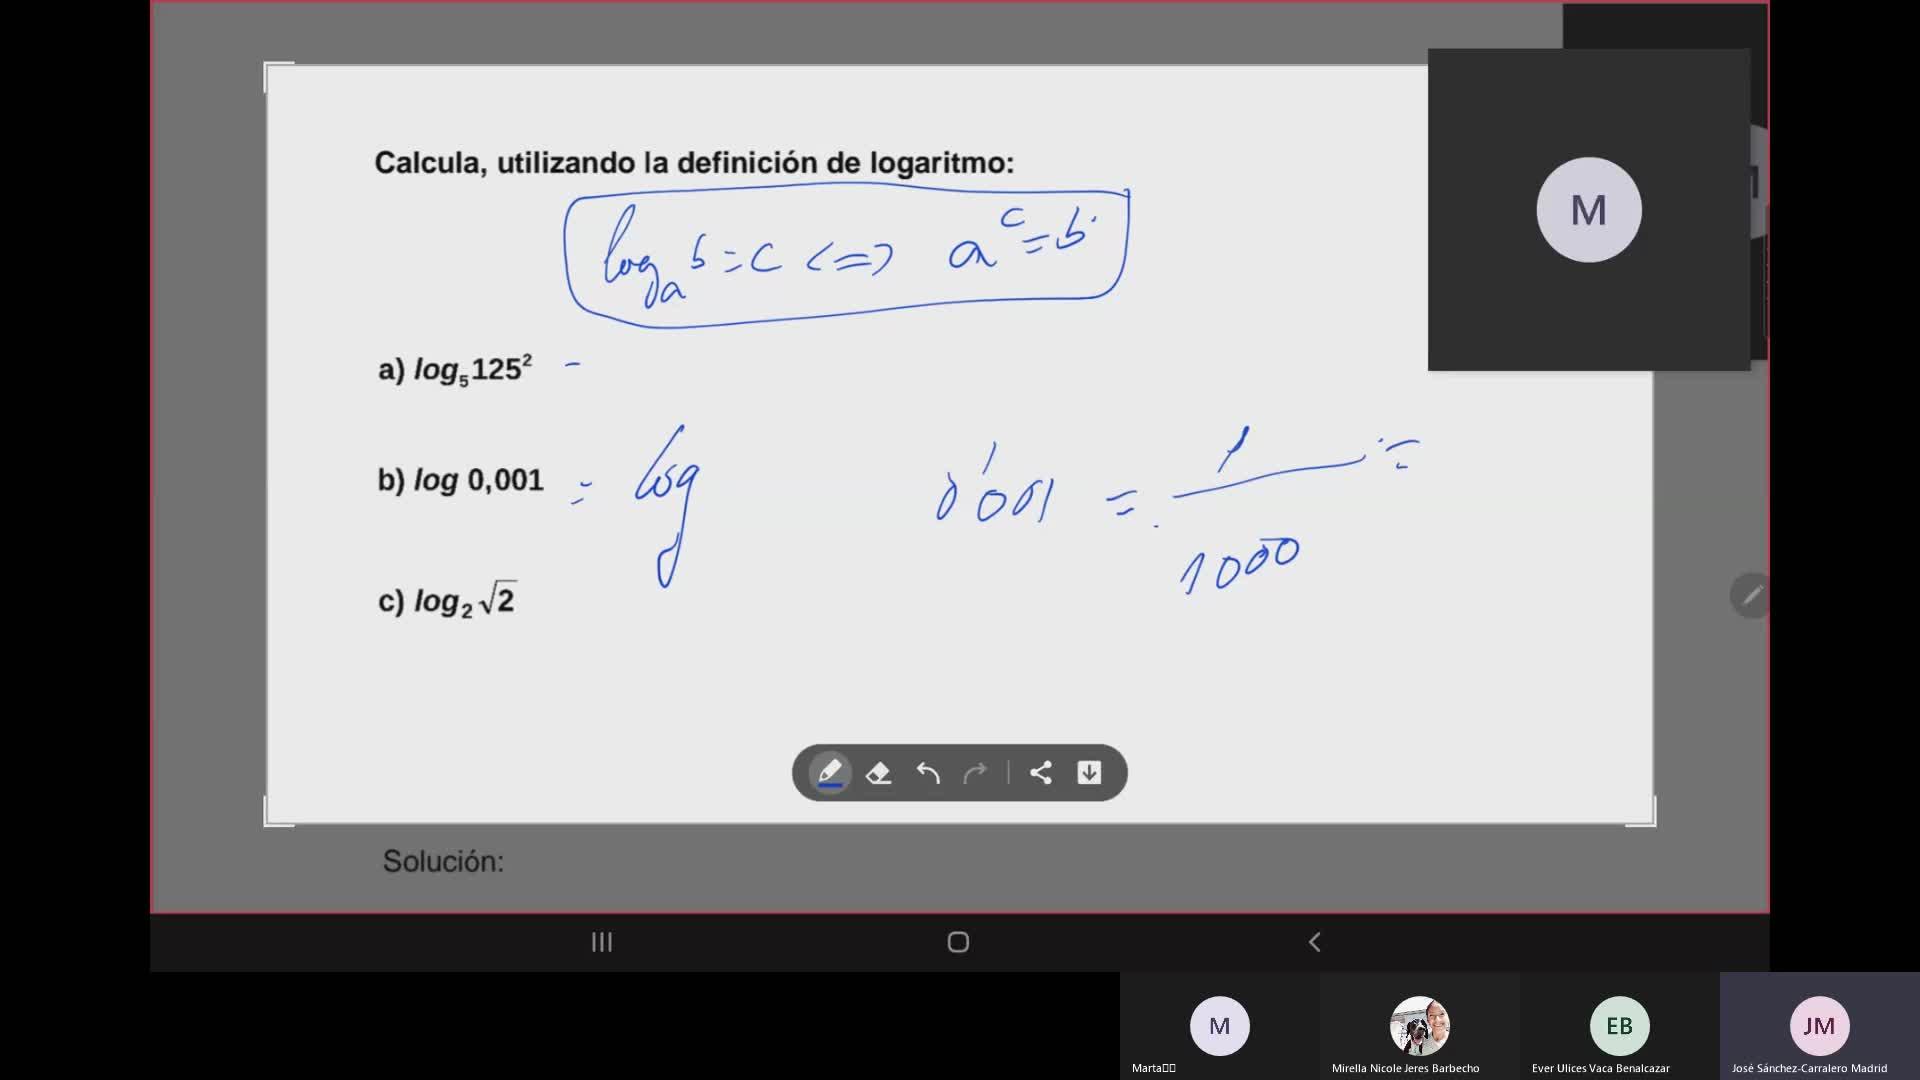 Calcula, utilizando la definición de logaritmo:
log_a b = c <=> a^c = b
a) log₅125² -
b) log 0,001 = log 0'001 = 1/1000 =
c) log₂√2
Solución:
M
M
EB
JM
Marta
Mirella Nicole Jeres Barbecho
Ever Ulices Vaca Benalcazar
José Sánchez-Carralero Madrid